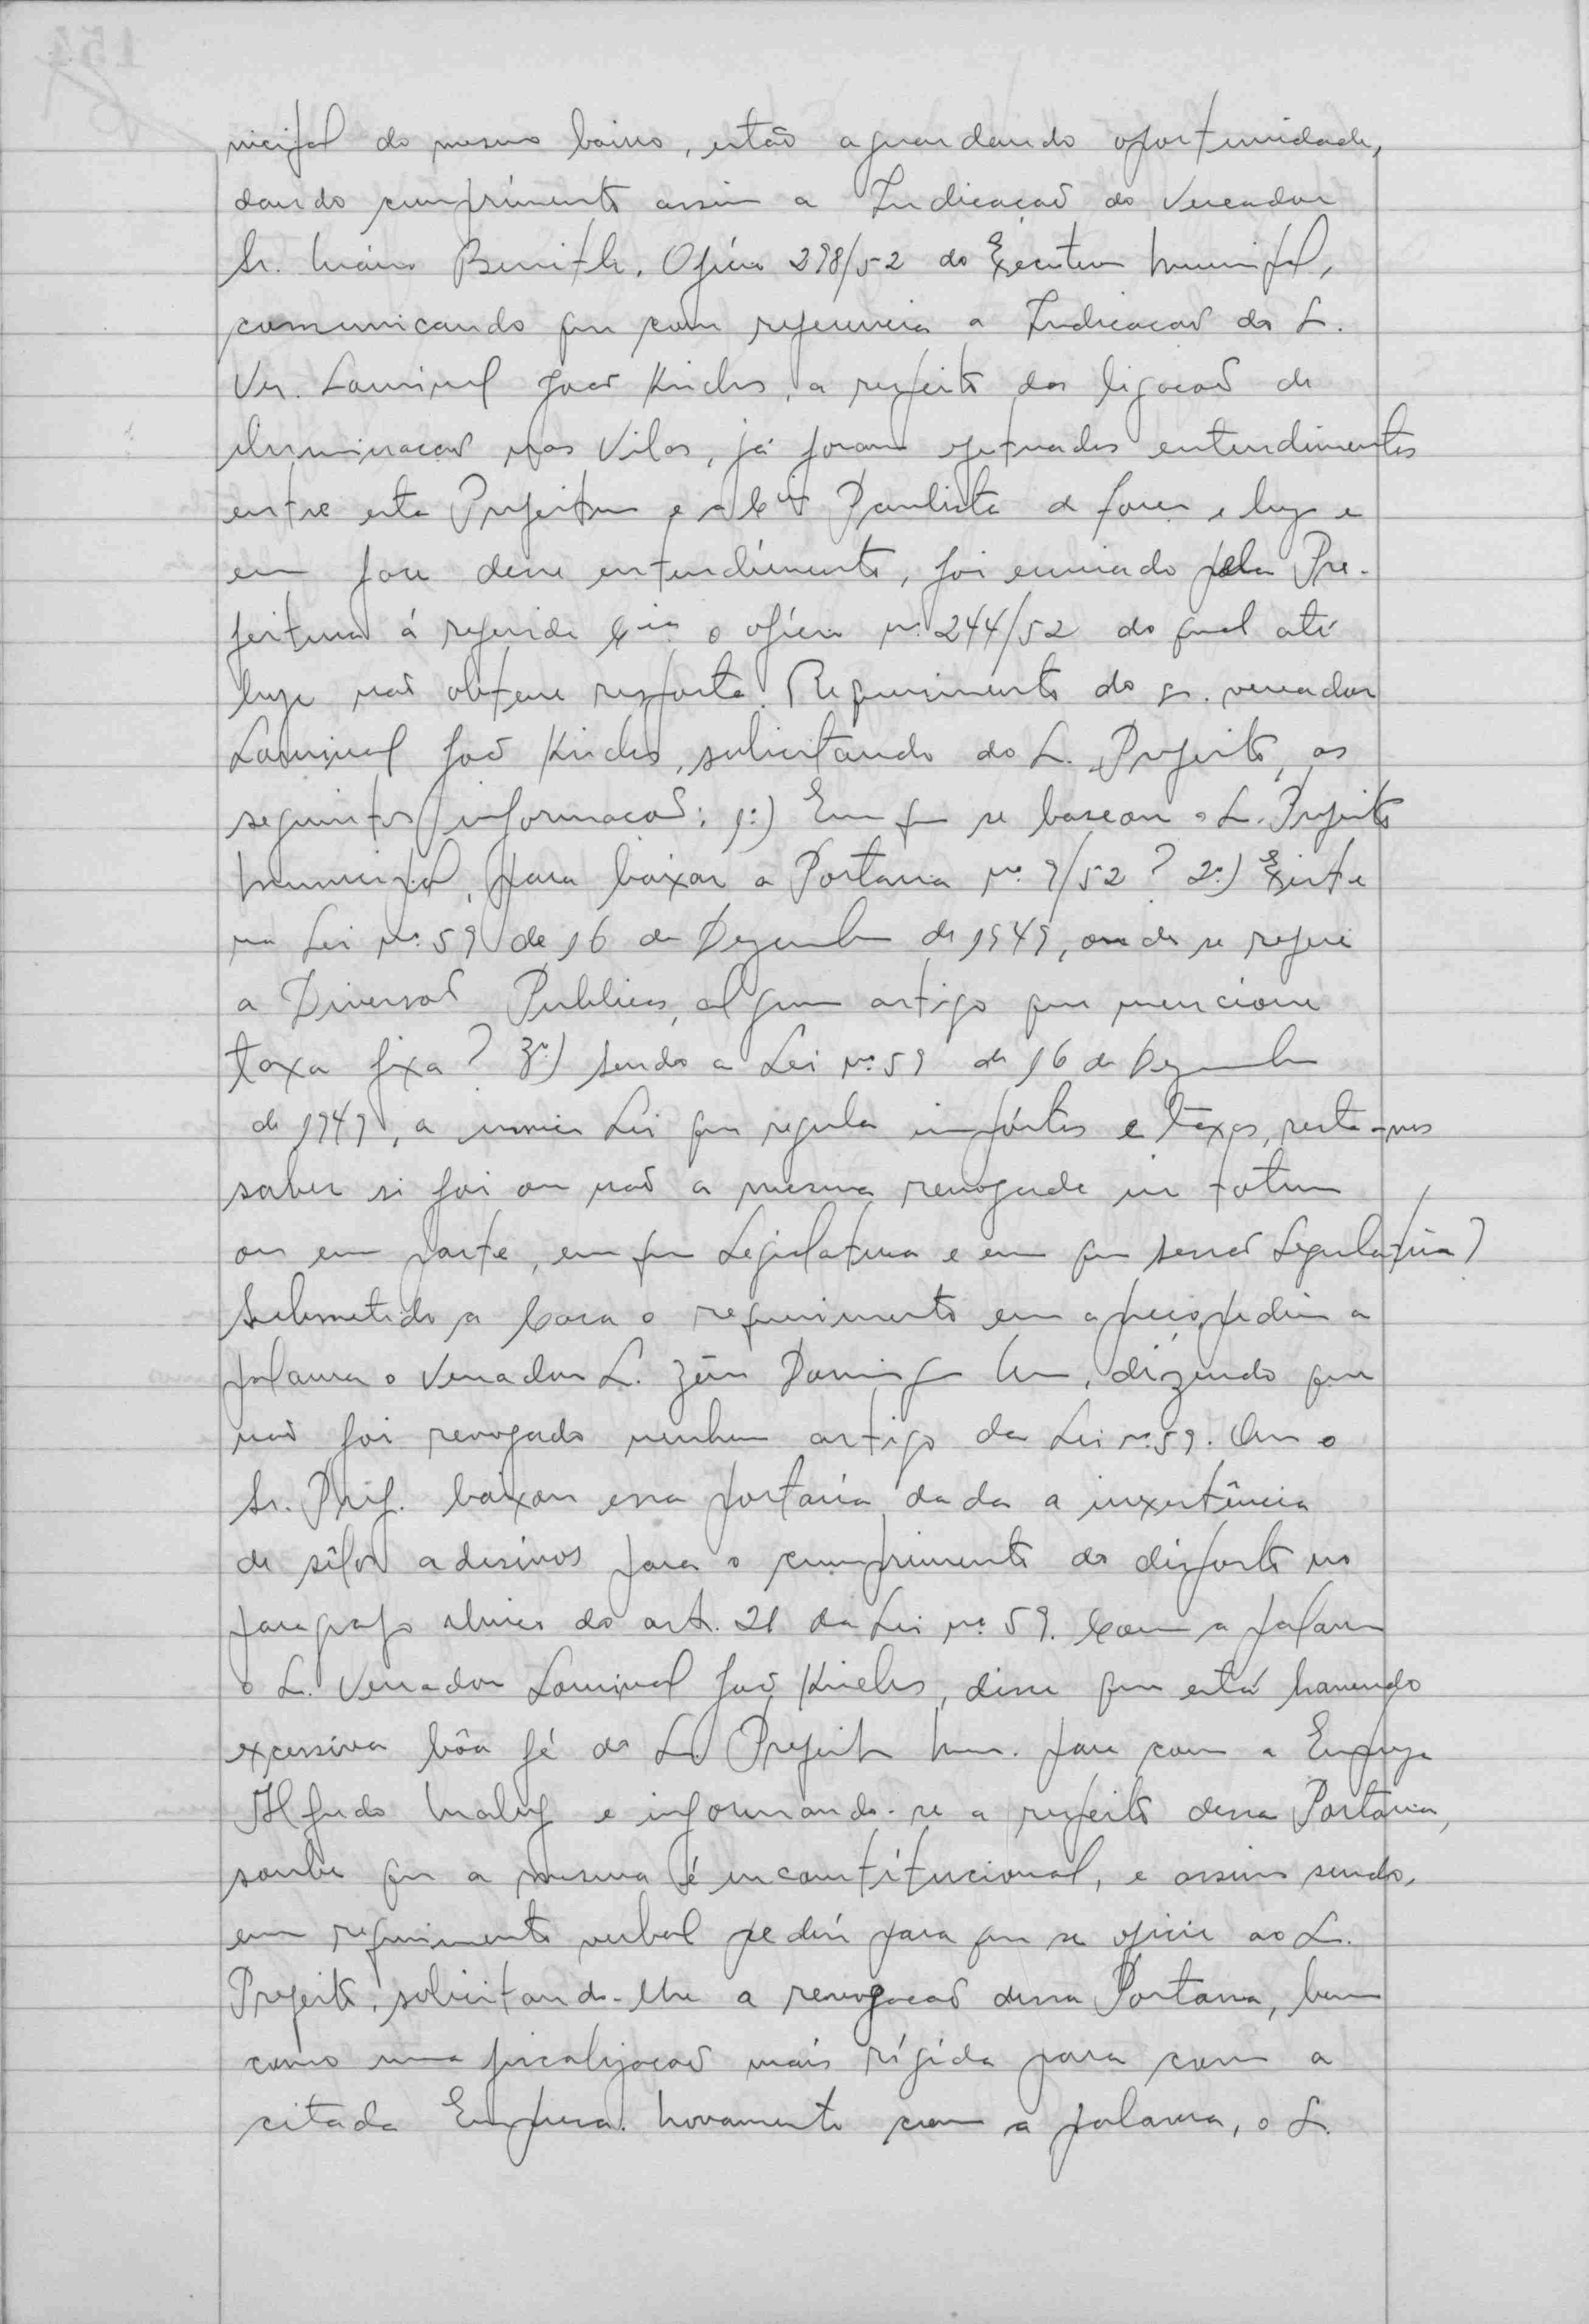 nicipal do mesmo bairro, estão aguardando oportunidade,
dando cumprimento assim a Indicação do Vereador
Sr. Mário Benith. Ofício 298/52 do Executivo Municipal,
comunicando que com referencia a Indicação do S.
Ver. Lourival João Kirches, a respeito das ligação de
iluminação nas Vilas, já foram efetuados entendimentos
entre esta Prefeitura e a Cia Paulista de força e luz e
em face desse entendimento, foi enviado pela Pre-
feitura á referida Cia o ofício nº 244/52 do qual até
hoje não obteve resposta. Requerimento do sr. vereador
Lourival João Kirches, solicitando do S. Prefeito, as
seguintes informação: 1º) Em que se baseou o S. Prefeito
Municipal, para baixar a Portaria nº 9/52? 2º) Existe
na Lei nº 59 de 16 de Dezembro de 1949, onde se refere
a Diversão Publica, algum artigo que mencione
taxa fixa? 3º) Sendo a Lei nº 59 de 16 de Dezembro
de 1949, a unica Lei que regula impóstos e taxas, resta-nos
saber si foi ou não a mesma revogada in totum
ou em parte, em que Legislatura e em que sessão Legislativa?
Submetido a Casa o requerimento em apreço, pediu a
palavra o Vereador S. Domingos, dizendo que
não foi revogado nenhum artigo da Lei nº 59. Que o
Sr. Pref. baixou essa portaria dada a inexistência
de sêlos adesivos para o cumprimento do disposto no
paragrafo unico do art. 21 da Lei nº 59. Com a palavra
o S. Vereador Lourival João Kirches, disse que está havendo
excessiva bôa fé do S. Prefeito Mun. para com a Empreza
Alfredo e informando-se a respeito dessa Portaria,
soube que a mesma é inconstitucional, e assim sendo,
em requerimento verbal pediu para que se oficie ao S.
Prefeito, solicitando-lhe a revogação dessa Portaria, bem
como uma fiscalização mais rígida para com a
citada Empresa. Novamente com a palavra, o S.